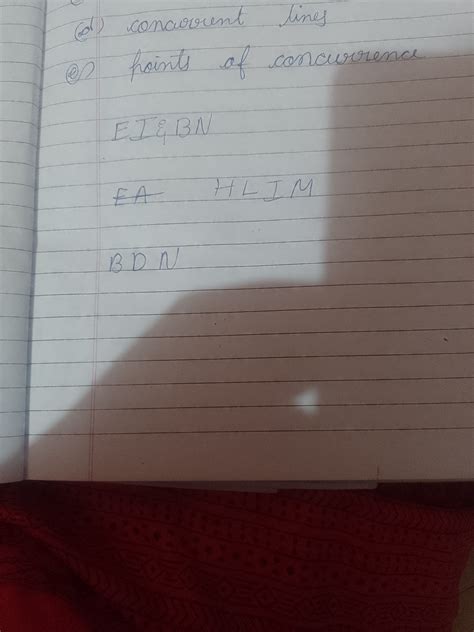 (d) concurrent lines
(e) points of concurrence
EI & BN
EA HLIM
BDN